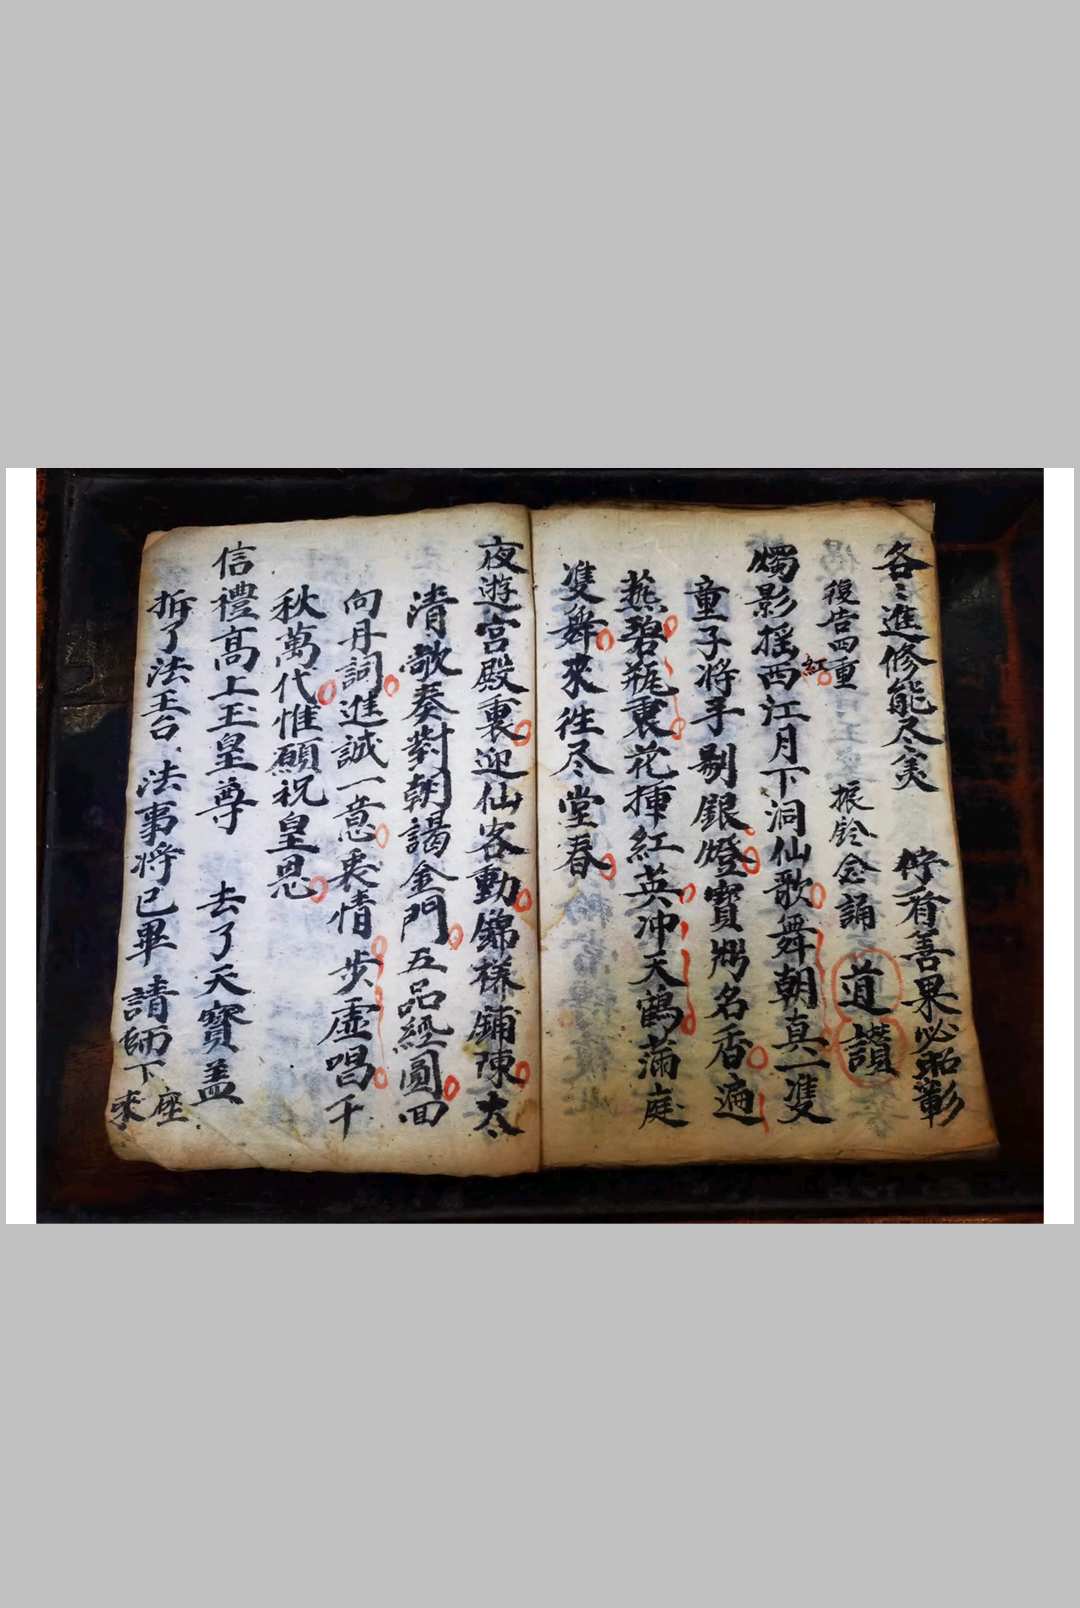 各〻進修能尽美　佇看善果必昭彰
復告四重　振鈴念誦　道讃
燭影摇紅西江月下洞仙歌舞朝真一隻
童子将手剔銀燈寳炉名香遍
爇碧瓶裏花揷紅英冲天鶴滿庭
隻舞來徃尽堂春
夜遊宫殿裏迎仙客動錦褥鋪陳太
清敬奏對朝謁金門五品經圓回
向丹詞進誠一意衷情步虚唱千
秋萬代惟願祝皇恩
信禮髙上玉皇尊　去了天寳盖
拆了法王台　法事将已畢　請師下
座來